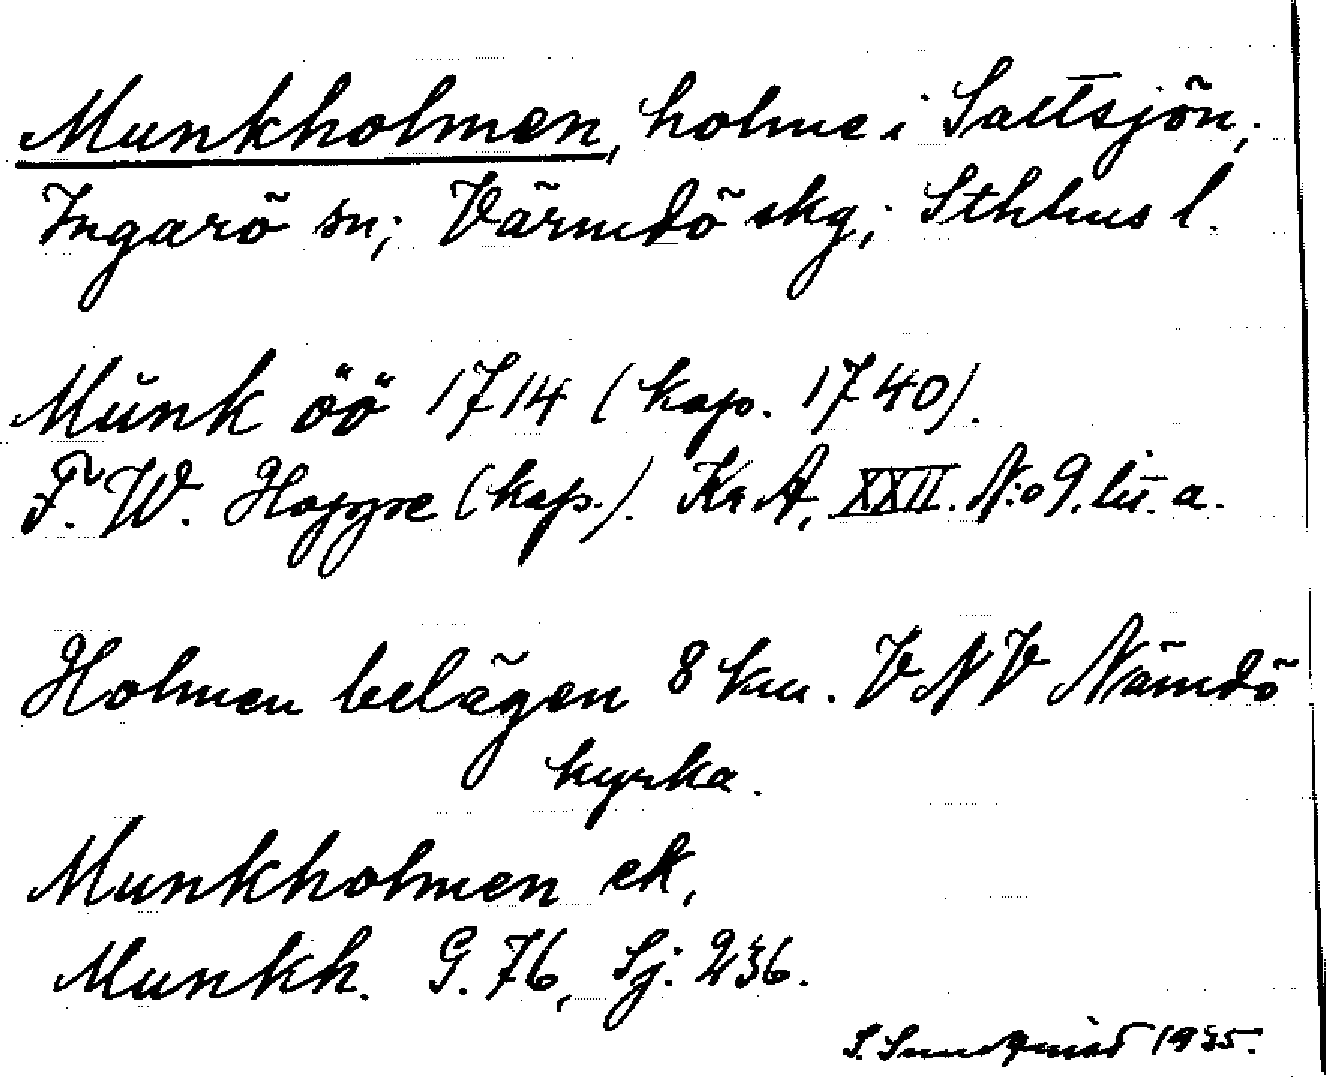 Munkholmen, holme i Saltsjön,
Ingarö sn; Värmdö skg; Sthlms l.
Munk öö 1714 (kop. 1740).
F. W. Hoppe (kop.). Kr A, XXII. N:o 9. lit. a.
Holmen belägen 8 km. V N V Nämdö
kyrka.
Munkholmen ek,
Munkh. G. 76, Sj. 236.
S. Sundqvist 1935.